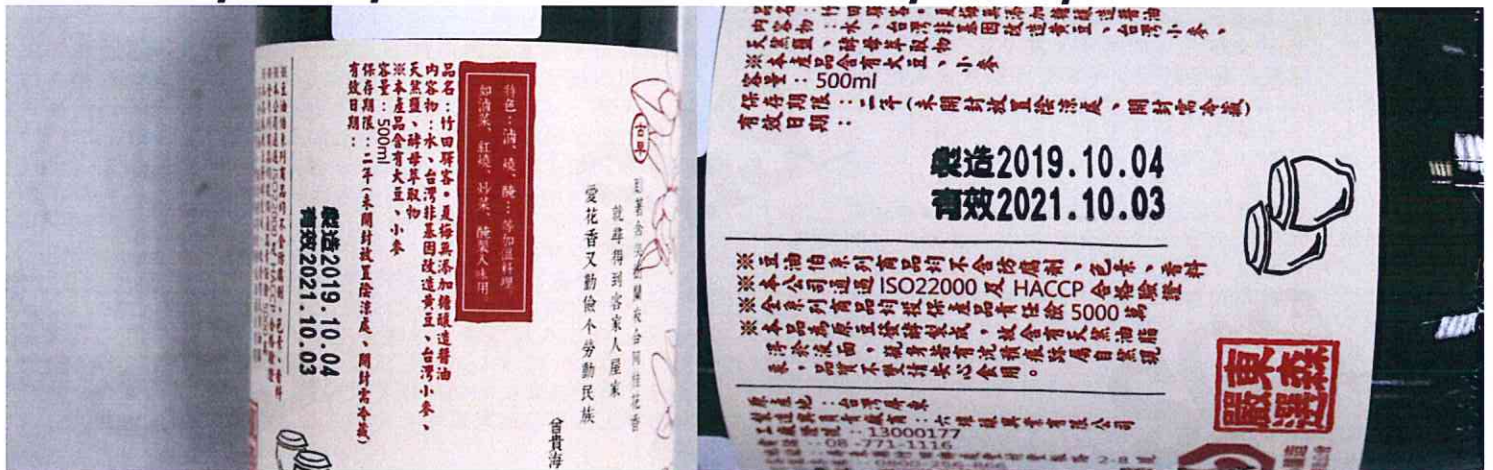 品名：竹田驛客。夏梅無添加糖釀造醬油
內容物：水、台灣非基因改造黃豆、台灣小麥、
天然鹽、酵母萃取物
※本產品含有大豆、小麥
容量：500ml
保存期限：二年(未開封放置陰涼處、開封需冷藏)
有效日期：
製造2019.10.04
有效2021.10.03
特色：滷、燒、醃：等加溫料理
如滷菜、紅燒、炒菜、醃製入味用
古早
就尋得到客家人屋家
愛花香又勤儉个勞動民族
曾貴海
內容物：水、台灣非基因改造黃豆、台灣小麥、
天然鹽、酵母萃取物
※本產品含有大豆、小麥
容量：500ml
保存期限：二年(未開封放置陰涼處、開封需冷藏)
有效日期：
製造2019.10.04
有效2021.10.03
※豆油伯系列商品均不含防腐劑、色素、香料
※本公司通過ISO22000及HACCP合格驗證
※全系列商品均投保產品責任險5000萬
※本品為原豆發酵製成，故含有天然油脂
浮於液面，瓶身若有沉積痕跡屬自然現
象，品質不變請安心食用。
東森嚴選
原產地：台灣屏東
13000177
08-771-1116